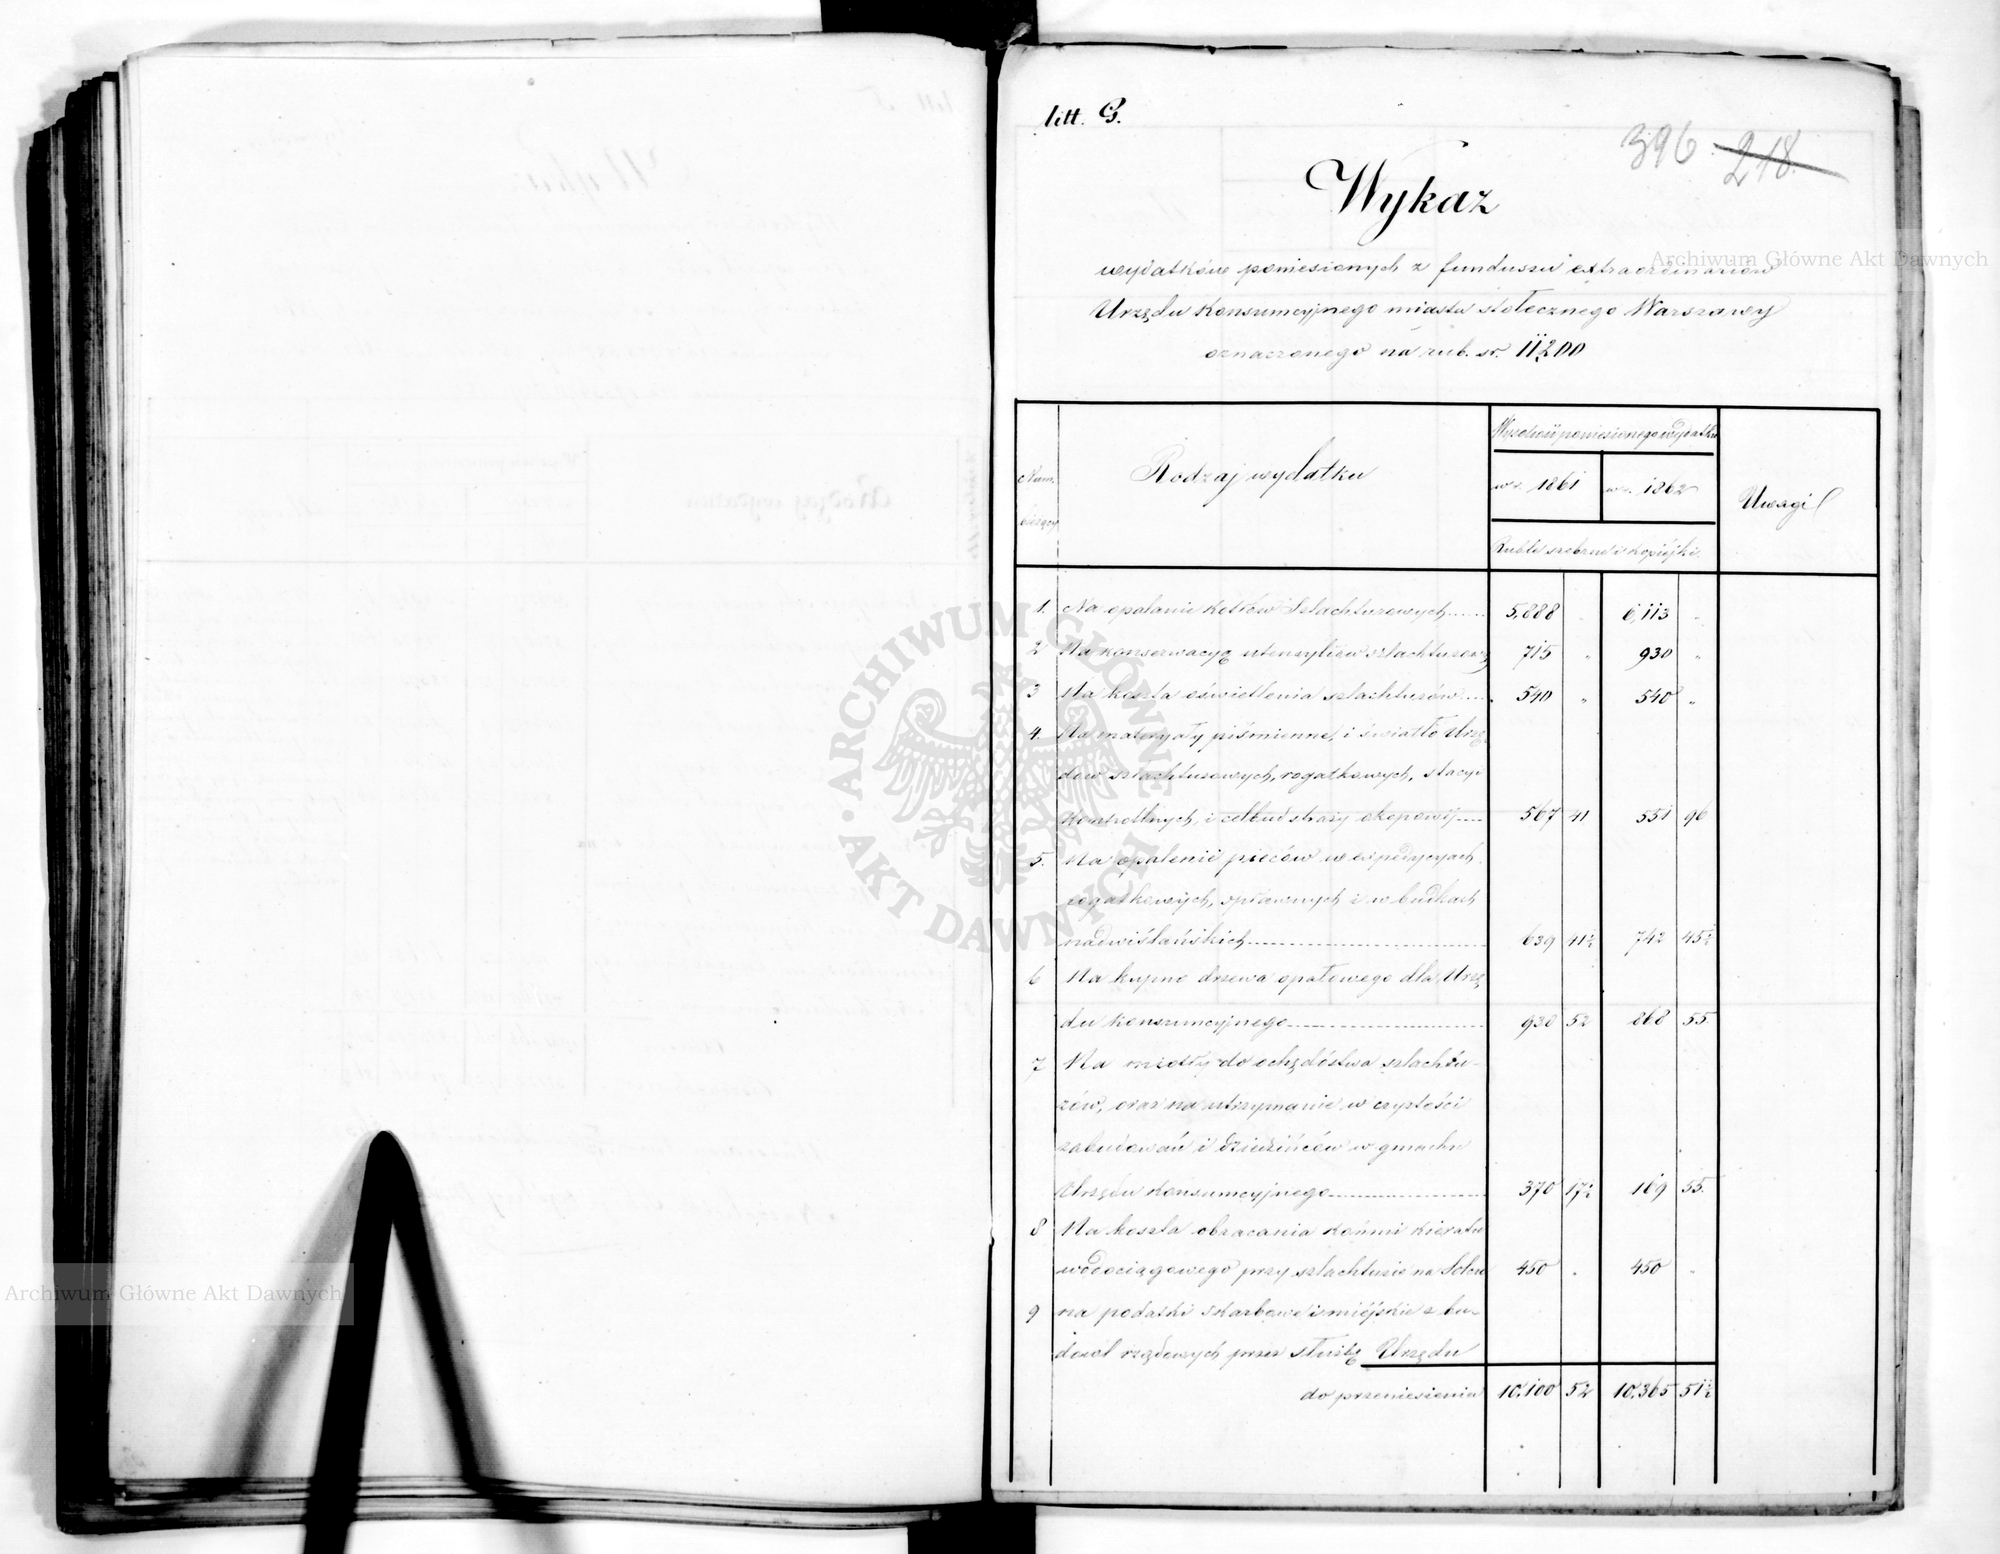 litt. G.
396 218.
Wykaz
wydatków poniesionych z funduszu extraordinariów
Urzędu Konsumcyjnego miasta stołecznego Warszawy
oznaczonego na rub. sr. 11200
Num. bieżący
Rodzaj wydatku
Wysokość poniesionego wydatku
w r. 1861
w r. 1862
Uwagi
Ruble srebrne i kopiejki.
1. Na opalanie kotłów Szlachtuzowych 5,888 „ 6,113 „
2 Na konserwacyą utensyliów szlachtuzow: 715 „ 930 „
3 Na koszta oświetlenia szlachtuzów 540 „ 540 „
4. Na materyały piśmienne, i światło Urzę-
dów szlachtuzowych, rogatkowych, stacyi
Kontrollnych, i celbud straży okopowej 567 41 551 96
5. Na opalenie pieców w expedycyach
rogatkowych, spławnych i w budkach
nadwiślańskich 639 41½ 742 45½
6 Na kupno drzewa opałowego dla Urzę
du konsumcyjnego 930 52 868 55.
7 Na miotły do ochędóstwa szlachtu-
zów, oraz na utrzymanie w czystości
zabudowań i dziedzińców w gmachu
Urzędu Konsumcyjnego 370 17½ 169 55.
8 Na koszta obracania końmi kieratu
wodociągowego przy szlachtuzie na Solcu 450 „ 450 „
9 na podatki skarbowe i miejskie z bu-
dowl rządowych przez służbę Urzędu
do przeniesienia 10,100 52 10,365 51½
Archiwum Główne Akt Dawnych
ARCHIWUM GŁÓWNE • AKT DAWNYCH •
Archiwum Główne Akt Dawnych